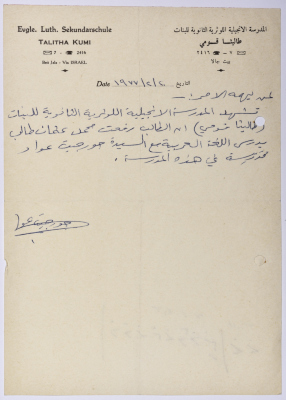 Evgle. Luth. Sekundarschule
TALITHA KUMI
✉ 7 · ☎ 2416
Beit Jala - Via ISRAEL
المدرسة الانجيلية اللوثرية الثانوية للبنات
طاليثا قومي
✉ ٧ - ☎ ٢٤١٦
بيت جالا
Date ١٩٧٧/٢/٢٠ تاريخ
لمن يهمه الامر :-
تشهد المدرسة الانجيلية اللوثرية الثانوية للبنات
(طاليثا قومي) ان الطالب رفعت محمد عثمان طالب
يدرس اللغة العربية مع السيدة جورجيت عواد
مدرسة في هذه المدرسة .